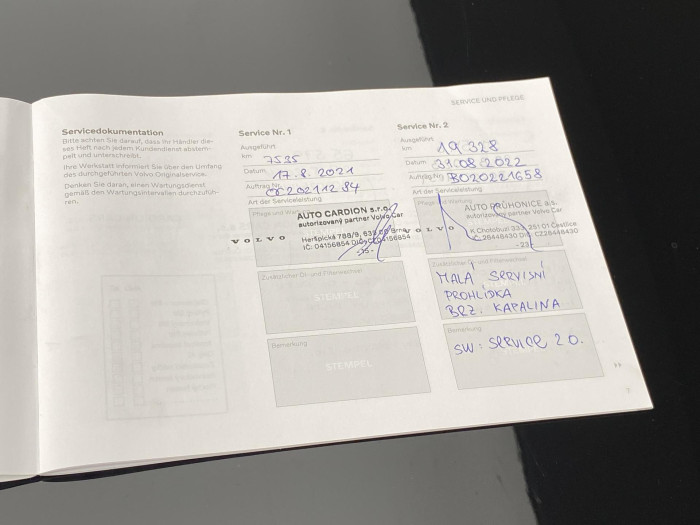 SERVICE UND PFLEGE
Servicedokumentation
Bitte achten Sie darauf, dass Ihr Händler die-
ses Heft nach jedem Kundendienst abstem-
pelt und unterschreibt.
Ihre Werkstatt informiert Sie über den Umfang
des durchgeführten Volvo Originalservice.
Denken Sie daran, einen Wartungsdienst
gemäß den Wartungsintervallen durchzufüh-
ren.
Service Nr. 1
Ausgeführt
km 7535
Datum 17.8.2021
Auftrag Nr.
Art der Serviceleistung
Pflege und Wartung
AUTO CARDION s.r.o.
autorizovaný partner Volvo Car
VOLVO
Heršpická 788/9, Brno
IČ: 04156854
-35-
Zusätzlicher Öl- und Filterwechsel
STEMPEL
Bemerkung
STEMPEL
Service Nr. 2
Ausgeführt
km 19 328
Datum 31.08.2022
Auftrag Nr. BO20221658
Art der Serviceleistung
Pflege und Wartung
AUTO PRŮHONICE a.s.
autorizovaný partner Volvo Car
VOLVO
K Chotobuzi 251 01 Čestlice
-23-
Zusätzlicher Öl- und Filterwechsel
MALÁ SERVISNÍ
PROHLÍDKA
BRZ. KAPALINA
Bemerkung
SW: SERVICE 2.0.